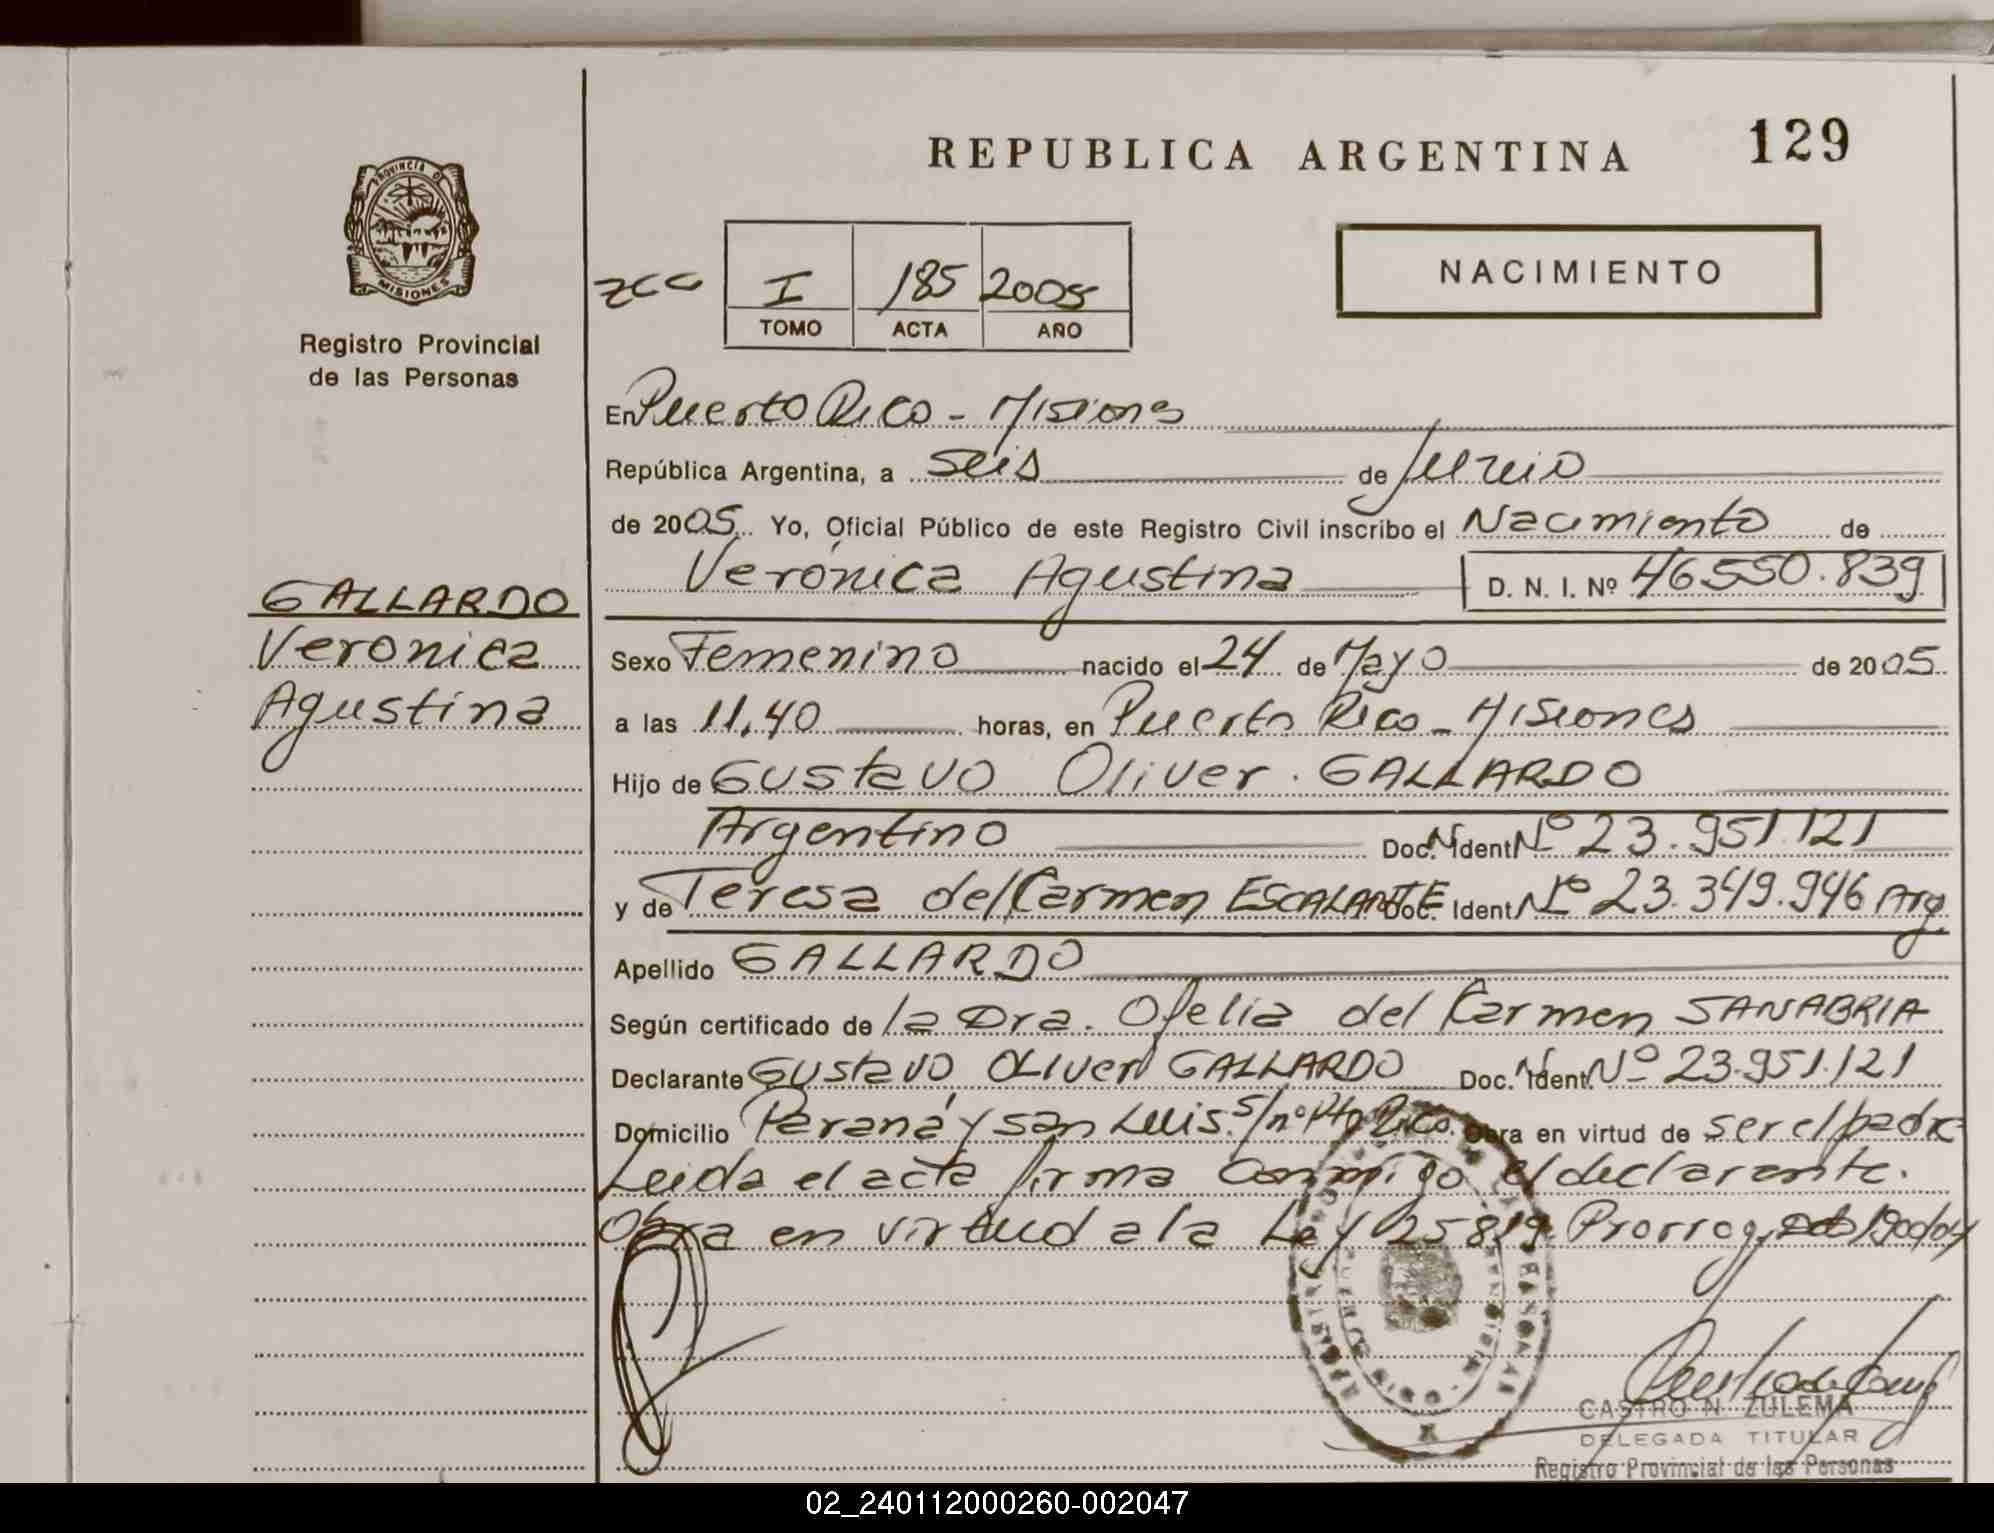 REPUBLICA ARGENTINA 129
PROVINCIA DE
MISIONES
Registro Provincial
de las Personas
NACIMIENTO
I 185 2005
TOMO ACTA AÑO
En Puerto Rico - Misiones
República Argentina, a seis de Junio
de 2005 Yo, Oficial Público de este Registro Civil inscribo el Nacimiento de
Verónica Agustina D. N. I. Nº 46550.839
GALLARDO
Veronica
Agustina
Sexo Femenino nacido el 24 de Mayo de 2005
a las 11,40 horas, en Puerto Rico - Misiones
Hijo de Gustavo Oliver GALLARDO
Argentino Doc. N. Ident Nº 23.951.121
y de Teresa del Carmen ESCALANTE Doc. Ident Nº 23.349.946 Arg.
Apellido GALLARDO
Según certificado de la Dra. Ofelia del Carmen SANABRIA
Declarante Gustavo OLIVER GALLARDO Doc. N. Ident. Nº 23.951.121
Domicilio Paraná y San Luis s/nº Pto Rico. Obra en virtud de ser el padre
Leida el acta firma conmigo el declarante.
Obra en virtud a la Ley 25819 Prorrog. 1900/04
CASTRO N. ZULEMA
DELEGADA TITULAR
Registro Provincial de las Personas
02_240112000260-002047